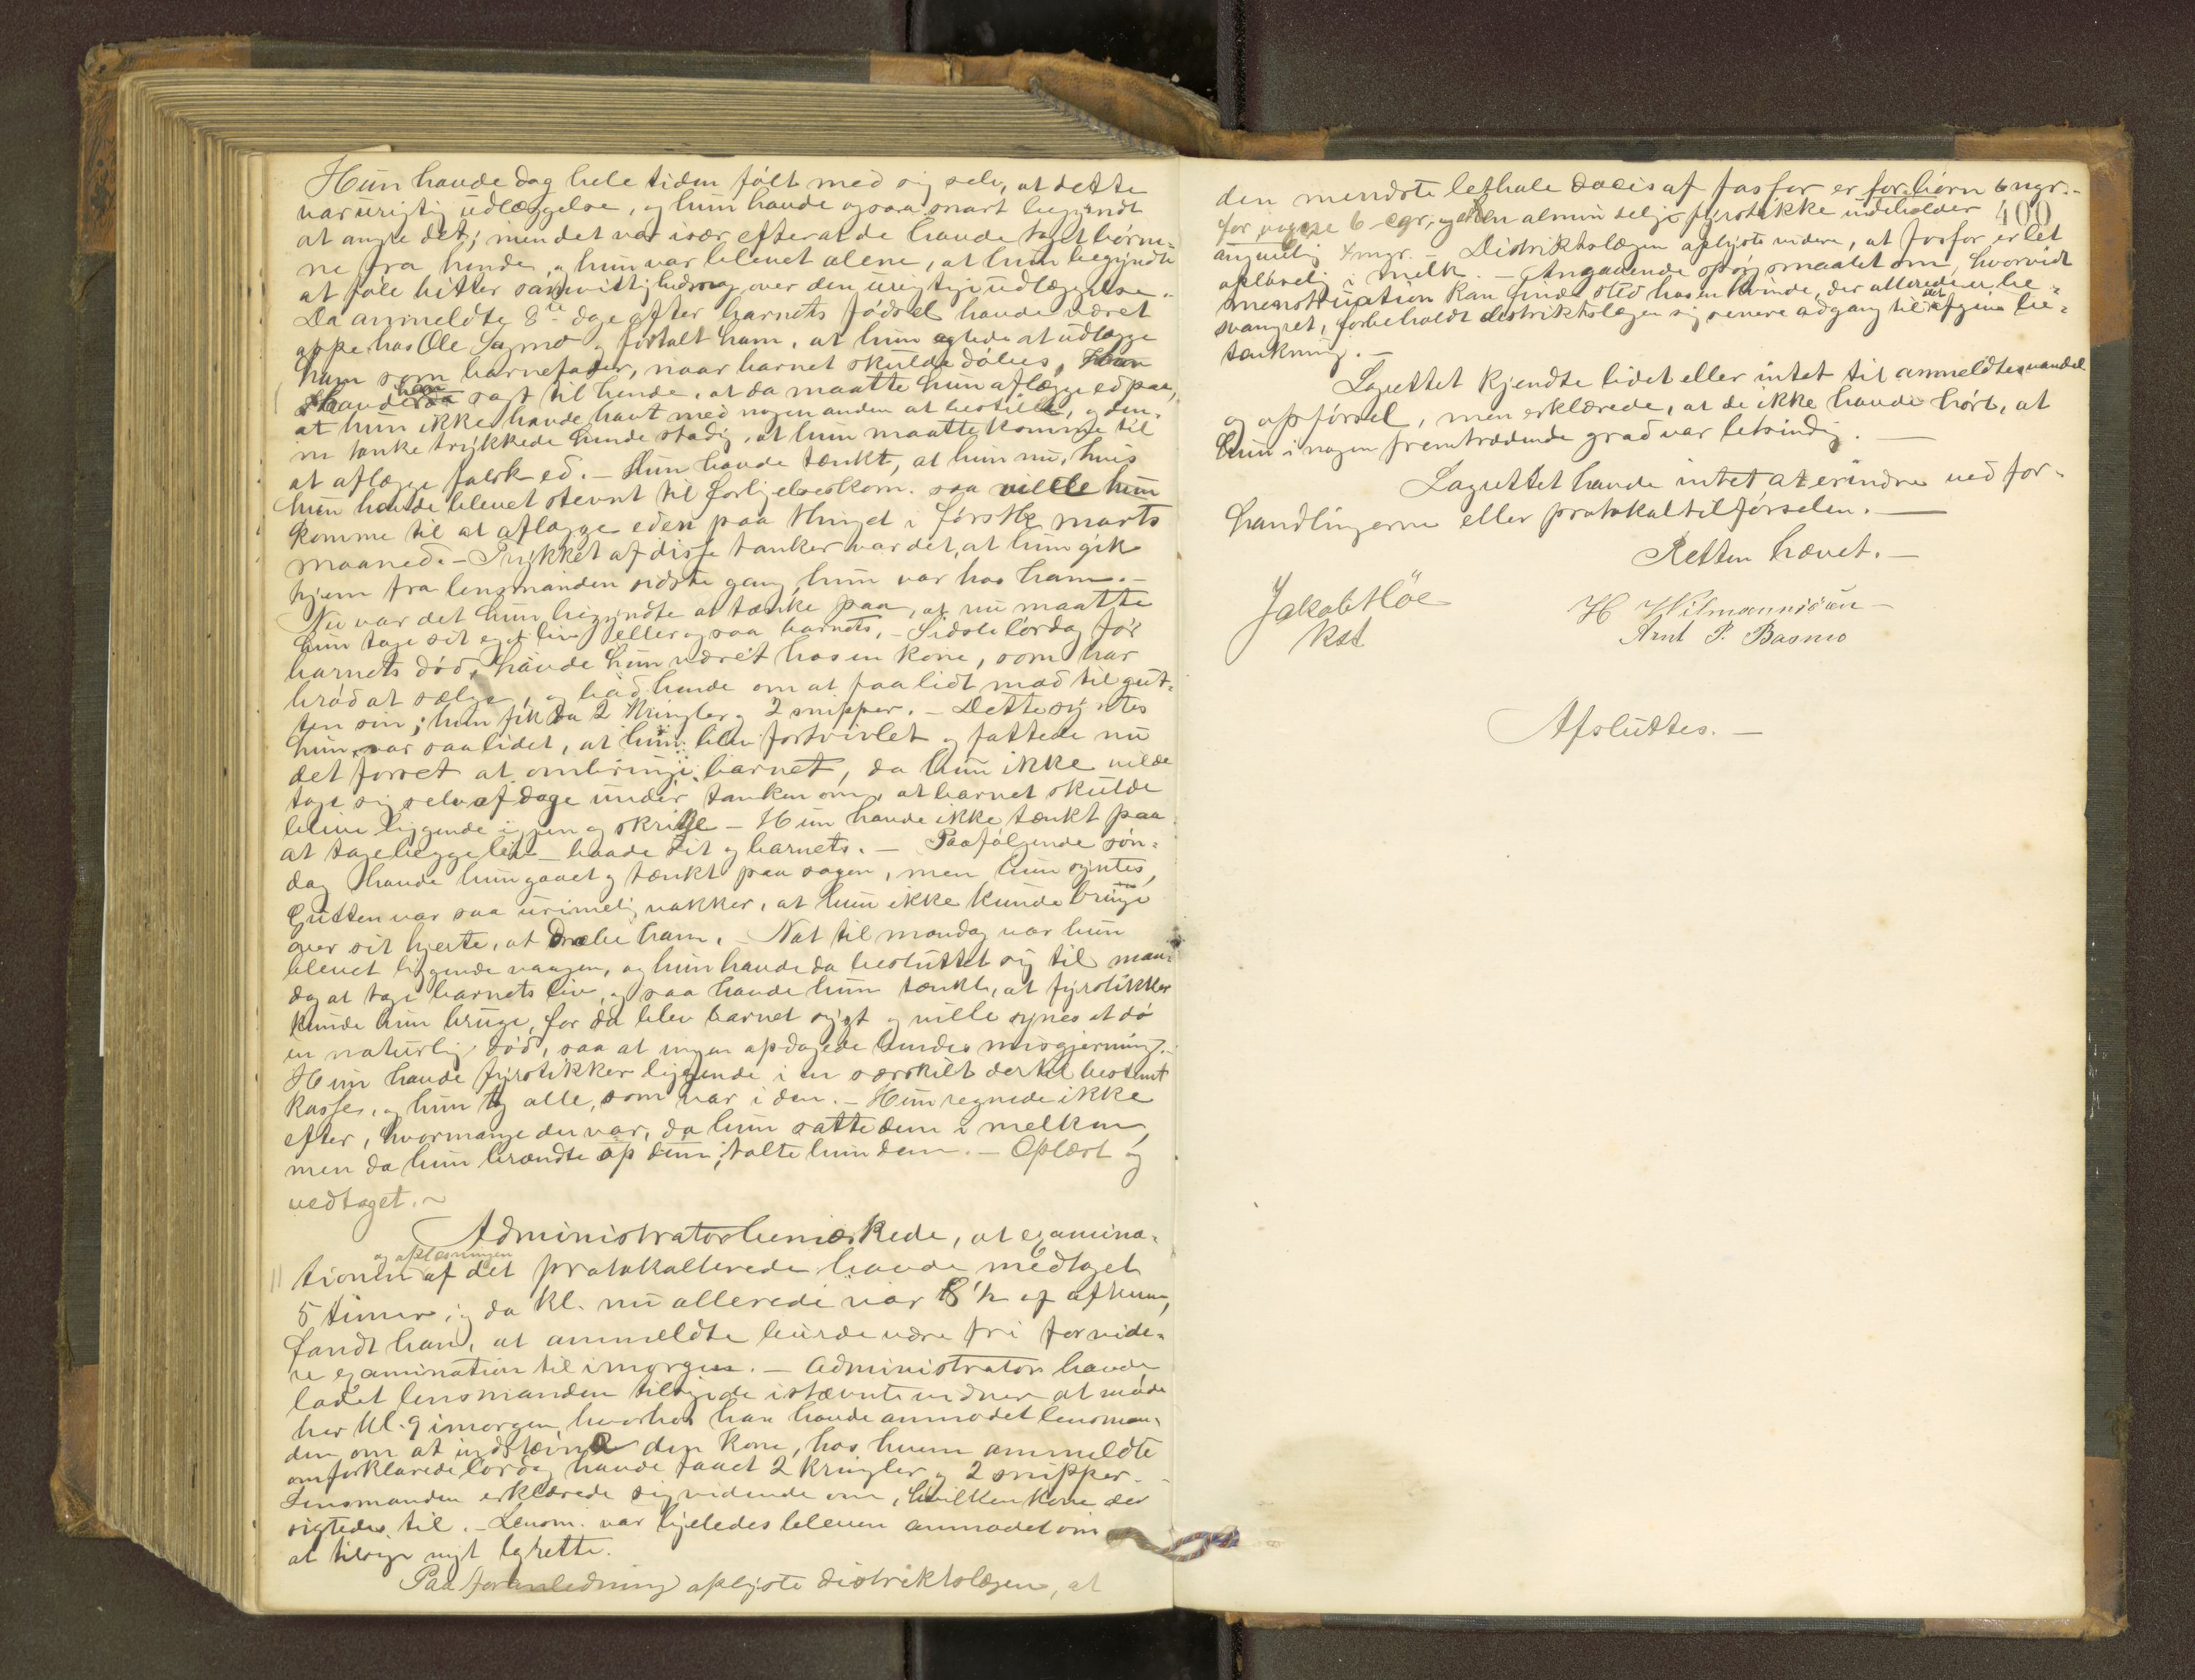 Hun havde dog hele tiden følt med sig selv, at dette
var urigtig udlæggelse, og hun havde ogsaa snart begyndt
at angre det; men det var især efter at de havde taget børne-
ne fra hende, og hun var blevet alene, at hun begyndte
at føle bitter samvittighedsnag over den urigtige udlæggelse.
Da anmeldte 8te dage efter barnets fødsel havde været
oppe hos Ole Sagmo og fortalt ham, at hun agtede at udlægge
ham som barnefader, naar barnet skulde døbes,
havde han sagt til hende, at da maatte hun aflægge ed paa,
at hun ikke havde havt med nogen anden at bestille, og den-
ne tanke trykkede hende stadig, at hun maatte komme til
at aflægge falsk ed. – Hun havde tænkt, at hun nu, hvis
hun havde blevet stevnt til forligelseskom. saa ville hun
komme til at aflægge eden paa thinget i første marts
maaned. – Trykket af disse tanker var det, at hun gik
hjem fra lensmanden sidste gang hun var hos ham. –
Nu var det hun begyndte at tænke paa, at nu maatte
hun tage sit eget liv eller ogsaa barnets. – Sidste lørdag før
barnets død, havde hun været hos en kone, som har
brød at sælge, og bad hende om at faa lidt mad til gut-
ten sin; hun fik da 2 kringler og 2 snipper. – Dette syntes
hun var saa lidet, at hun blev fortvivlet og fattede nu
det forset at ombringe barnet, da hun ikke vilde
tage sig selv af dage under tanken om, at barnet skulde
blive liggende igjen og skrige – Hun havde ikke tænkt paa
at tage begge liv – baade sit og barnets. – Paafølgende søn-
dag havde hun gaaet og tænkt paa sagen, men hun syntes,
Gutten var saa urimelig vakker, at hun ikke kunde bringe
over sit hjerte, at dræbe ham. – Nat til mandag var hun
blevet liggende vaagen, og hun havde da besluttet sig til man-
dag at tage barnets liv, og saa havde hun tænkt, at fyrstikker
kunde hun bruge, for da blev barnet sygt og ville synes at dø
en naturlig død, saa at ingen opdagede hendes misgjerning. –
Hun havde fyrstikker liggende i en særskilt dertil bestemt
kasse, og hun tog alle, som var i den. – Hun regnede ikke
efter, hvormange der var, da hun satte dem i melken,
men da hun brændte op dem, talte hun dem. – Oplæst og
vedtaget. ~
Administrator bemærkede, at examina-
og oplæsningen
tionen af det protokollerede havde medtaget
5 timer; og da kl. nu allerede var 8 ½ af aftenen,
fandt han, at anmeldte burde være fri for vide-
re examination til imorgen. – Administrator havde
ladet lensmanden tilsige istævnte vidner at møde
her kl. 9 imorgen, hvorhos han havde anmodet lensman-
den om at indstævne den kone, hos hvem anmeldte
omforklarede lørdag havde faaet 2 kringler og 2 snipper. –
Lensmanden erklærede sig vidende om, hvilken kone der
sigtedes til. – Lensm. var ligeledes bleven anmodet om
at tilsige nyt lgrette.
Paa foranledning oplyste distriktslægen, at
den mindste lethale dosis af fosfor er for børn 6 mgr. –
for voxne 6 cgr; og at en almindelig fyrstikke indeholder
400
angivelig 4 mgr. – Distriktslægen oplyste videre, at fosfor er let
opløselig i melk. – Angaaende spørgsmaalet om, hvorvidt
menstruation kan finde sted hos en kvinde, der allerede er be-
svangret, forbeholdt distriktslægen sig senere adgang til at afgive be-
tænkning. –
Lagrettet kjendte lidet eller intet til anmeldtes vandel
og opførsel, men erklærede, at de ikke havde hørt, at
hun i nogen fremtrædende grad var letsindig. –
Lagrettet havde intet at erindre ved for-
handlingerne eller protokoltilførselen. –
Retten hævet. –
Jakob Høe
kst
H Wilmannsøen
Arnt P. Basmo
Afsluttes. –